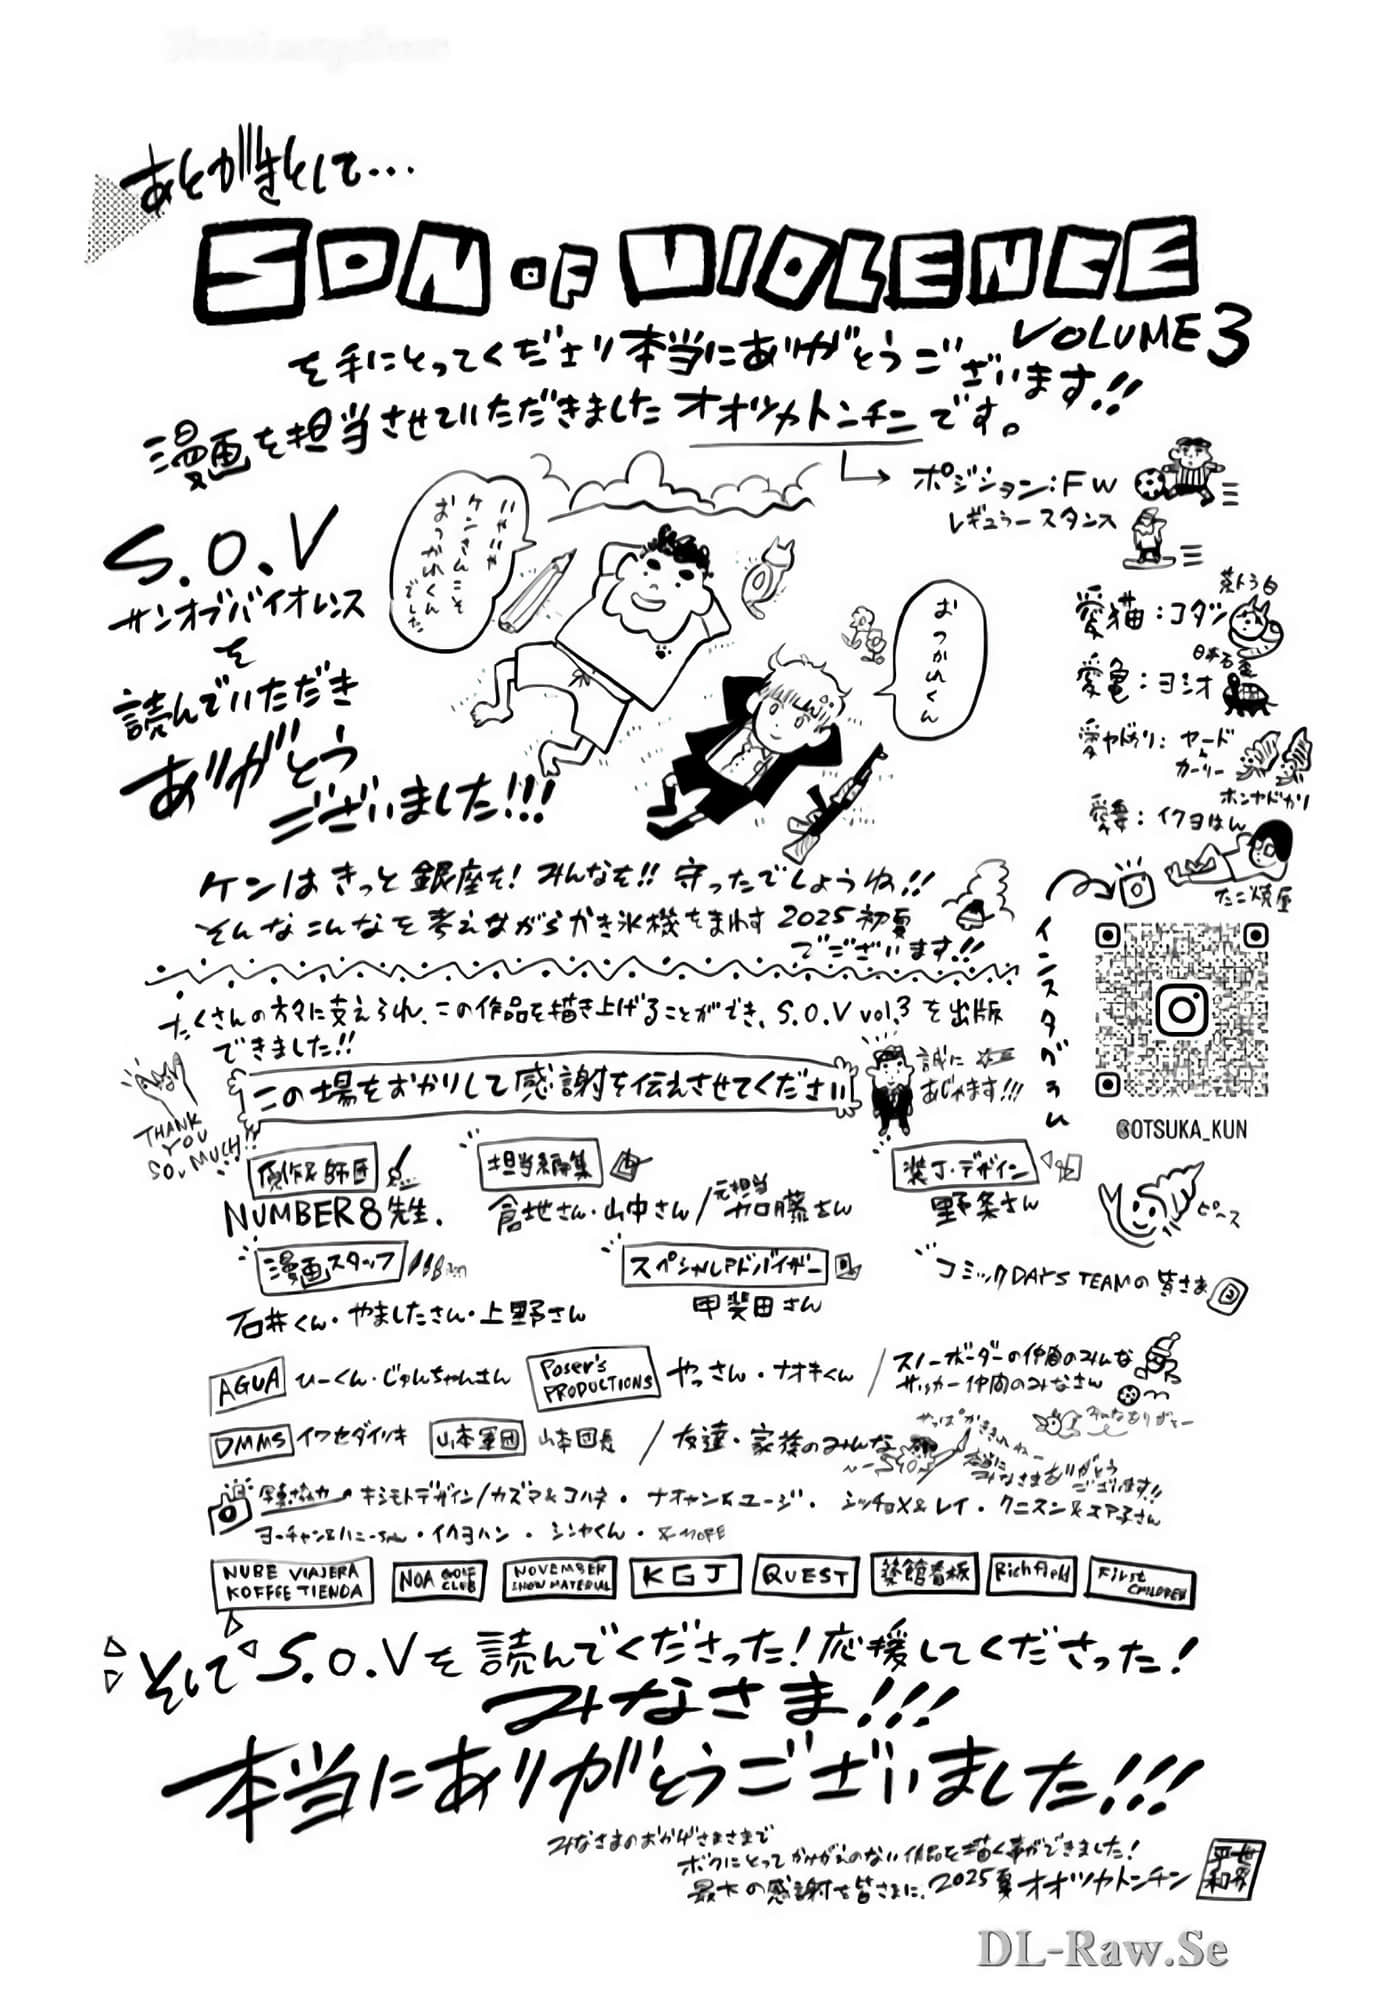 あとがきとして…
SON OF VIOLENCE
VOLUME 3
を手にとってくださり本当にありがとうございます!!
漫画を担当させていただきましたオオツカトンチンです。
ポジション:FW
レギュラースタンス
S.O.V
サンオブバイオレンス
を
読んでいただき
ありがとう
ございました!!!
いやいや
ケンさんこそ
おつかれくん
でした
おつかれくん
茶トラ白
愛猫:コダン
日本石亀
愛亀:ヨシオ
愛ヤドカリ:ヤード
&
カーリー
ホンヤドカリ
愛妻:イクヨはん
たこ焼屋
ケンはきっと銀座を!みんなを!!守ったでしょうね!!
そんなこんなを考えながらかき氷機をまわす2025初夏
でございます!!
インスタグラム
@OTSUKA_KUN
ピース
たくさんの方々に支えられ、この作品を描き上げることができ、S.O.V vol.3を出版
できました!!
この場をおかりして感謝を伝えさせてください
誠に
あじゃます!!!
THANK
YOU
SO, MUCH!!
原作&師匠
NUMBER8先生.
担当編集
倉地さん・山中さん/元担当 加藤さん
装丁・デザイン
野条さん
漫画スタッフ
石井くん・やましたさん・上野さん
スペシャルアドバイザー
甲斐田さん
コミックDAYS TEAMの皆さま
AGUA ひーくん・じゅんちゃんさん
Poser's PRODUCTIONS やっさん・ナオキくん
/スノーボーダーの仲間のみんな
サッカー仲間のみなさん
みんなありがとー
DMMS イワセダイリキ
山本軍団 山本団長
/友達・家族のみんな
本当に
みなさまありがとう
ございます!!
写真協力 キシモトデザイン/カズマ&コハネ・ナオャン&ユージ・シッチョメ&レイ・クニスン&
ヨーチャン&ハニーちゃん・イクヨハン・シンヤくん・& MORE
NUBE VIAJERA
KOFFEE TIENDA
NOA GOLF CLUB
NOVEMBER
SNOW MATERIAL
KGJ
QUEST
築館看板
Richfield
First CHILDREN
そしてS.O.Vを読んでくださった!応援してくださった!
みなさま!!!
本当にありがとうございました!!!
みなさまのおかげさまさまで
ボクにとってかけがえのない作品を描く事ができました!
最大の感謝を皆さまに、2025夏オオツカトンチン
世界
平和
DL-Raw.Se